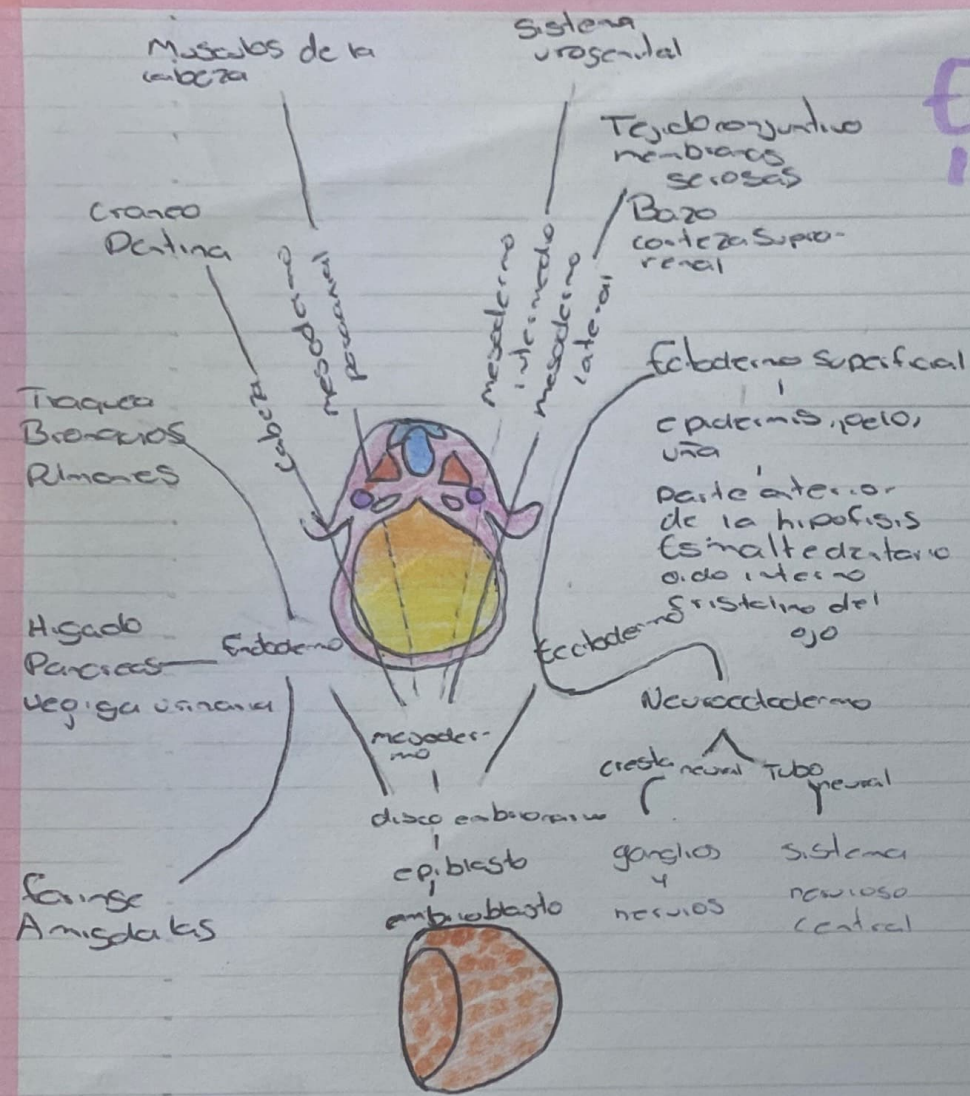 Musculos de la
cabeza
Sistema
urogenital
Tejido conjuntivo
membranas
serosas
Bazo
corteza Supra-
renal
Craneo
Dentina
cabeza
mesodermo
paraxial
mesodermo
intermedo
mesodermo
lateral
Ectodermo Superficial
epidermis, pelo,
uña
parte anterior
de la hipofisis
Esmalte dentario
oido interno
cristalino del
ojo
Traquea
Bronquios
Pulmones
Higado
Pancreas
vegiga urinaria
Endodermo
Ectodermo
Neuroectodermo
cresta neural
Tubo
neural
mesoder-
mo
disco embrionario
epiblasto
embrioblasto
ganglios
y
nervios
sistema
nervioso
central
faringe
Amigdalas